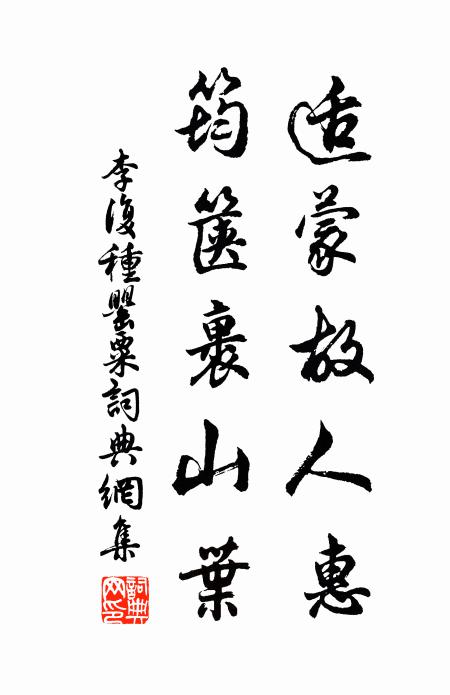 适蒙故人惠
筠箧裹山葉
李復種罂粟詞典網集
詞典网印